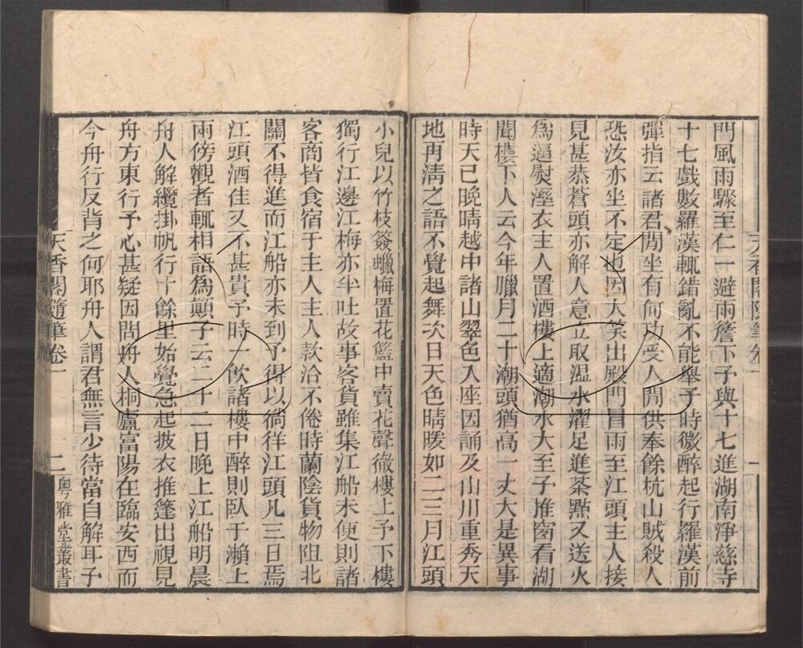 門風雨驟至仁一避雨簷下予與十七進湖南淨慈寺
十七戲數羅漢輒錯亂不能舉予時微醉起行羅漢前
彈指云諸君閒坐有何功受人間供奉餘杭山賊殺人
恐汝亦坐不定也因大笑出殿門冒雨至江頭主人接
見甚恭蒼頭亦解人意立取温水濯足進茶點又送火
爲逼熨溼衣主人置酒樓上適潮水大至予推窗看潮
聞樓下人云今年臘月二十潮頭猶高一丈大是異事
時天已晚晴越中諸山翠色入座因誦及山川重秀天
地再清之語不覺起舞次日天色晴暖如二三月江頭
小兒以竹枝簽蠟梅置花籃中賣花聲徹樓上予下樓
獨行江邊江梅亦半吐故事客貨雖集江船未便則諸
客商皆食宿于主人主人款洽不倦時蘭陰貨物阻北
關不得進而江船亦未到予得以徜徉江頭凡三日焉
江頭酒佳又不甚貴予時一飲諸樓中醉則臥于瀨上
兩傍觀者輒相語爲顛子云二十二日晚上江船明晨
舟人解纜掛帆行十餘里始覺急起披衣推篷出視見
舟方東行予心甚疑因問舟人桐廬富陽在臨安西而
今舟行反背之何耶舟人謂君無言少待當自解耳予
天香閣隨筆卷一
二
粵雅堂叢書